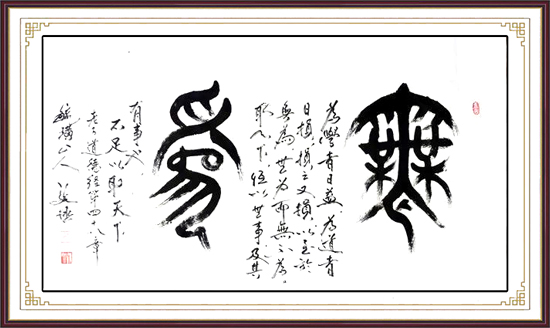 無
為學者日益為道者
日損損之又損以至於
無為無為而無不為
取天下恒以無事及其
為
有事也
不足以取天下
老子道德經第四十八章
山人